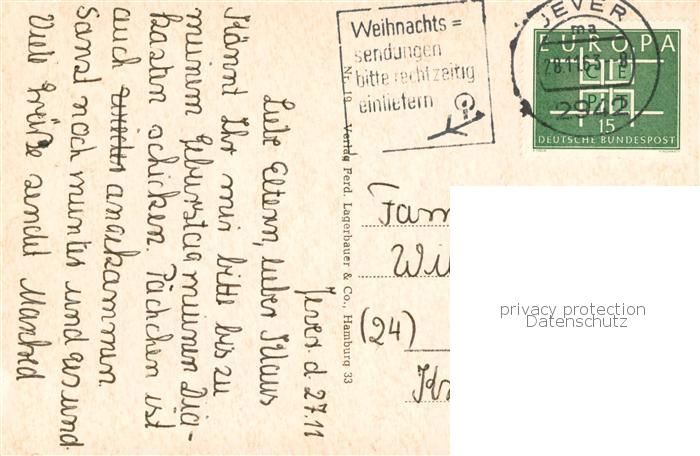 Jever d. 27.11
Liebe Eltern, lieber Klaus
Könnt Ihr mir bitte bis zu
meinem Geburstag meinen Dia-
kasten schicken. Päckchen ist
auch angekommen
sonst noch munter und gesund.
Viele Grüße sendet Manfred
Nr. 19 Verlag Ferd. Lagerbauer & Co., Hamburg 33
Weihnachts=
sendungen
bitte rechtzeitig
einliefern
JEVER
ma
28.11.63-8
2942
EUROPA
CEPT
15
DEUTSCHE BUNDESPOST
Fam
Wil
(24)
privacy protection
Datenschutz